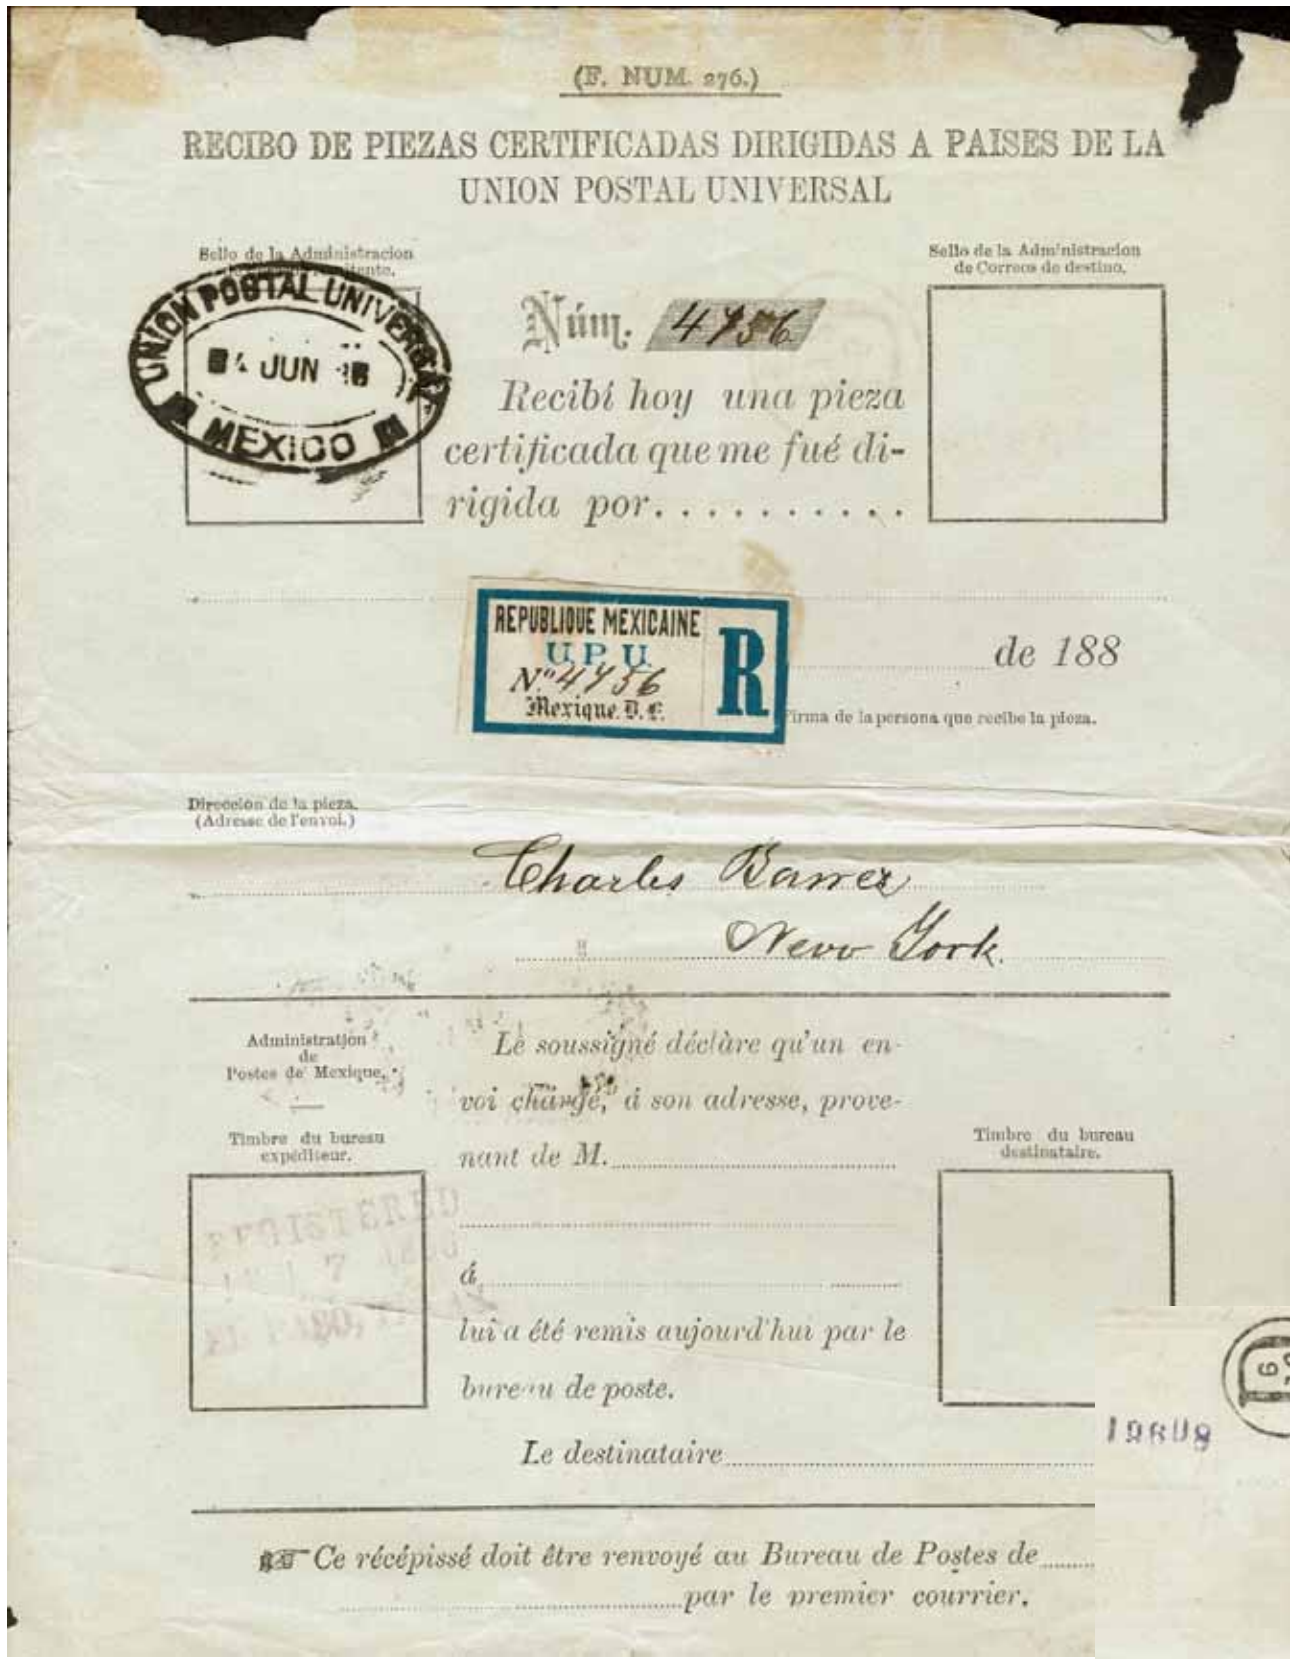 (F. NUM. 276.)
RECIBO DE PIEZAS CERTIFICADAS DIRIGIDAS A PAISES DE LA
UNION POSTAL UNIVERSAL
Sello de la Administracion
UNION POSTAL UNIVERSAL
JUN
MEXICO
Núm. 4756
Recibí hoy una pieza
certificada que me fué di-
rigida por..........
Sello de la Administracion
de Correos de destino.
REPUBLIQUE MEXICAINE
U.P.U.
No. 4756
Mexique. D. F.
R
de 188
Firma de la persona que recibe la pieza.
Direccion de la pieza.
(Adresse de l'envoi.)
Charles
New York.
Administration
de
Postes de Mexique.
Timbre du bureau
expéditeur.
REGISTERED
7
EL PASO,
Le soussigné déclàre qu'un en-
voi chargé, á son adresse, prove-
nant de M.
á
lui a été remis aujourd'hui par le
bureau de poste.
Le destinataire
Timbre du bureau
destinataire.
19608
Ce récépissé doit être renvoyé au Bureau de Postes de
par le premier courrier.